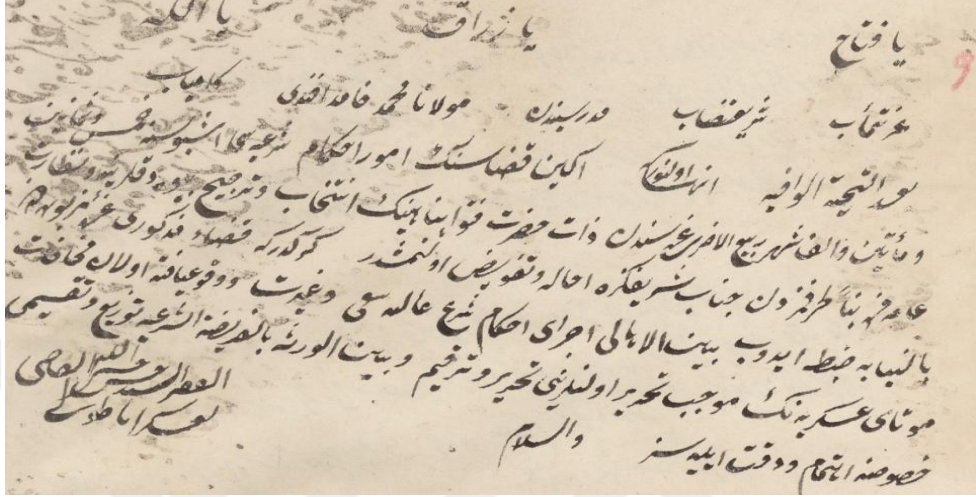 يا فتاح يا رزاق يا الله
عزتمآب شريعتنصاب مدرسيندن مولانا محمد حامد افندى كامياب
بعد التحية الوافيه انها اولنوركه اكين قضاسنك امور احكام شرعيه سى اشبو سنه خمس وثمانين
ومأتين والف شهر ربيع الاخرى غره سندن ذات حضرت فتوا پناهينك انتخاب وترجيح بيوردقلرينه ونظارت
عامه مزه بناً طرفمزدن جناب شريفكزه احاله وتفويض اولنمشدر كركدركه قضاء مذكورى غره مزبوره دن
بالنيابه ضبط ايدوب بين الاهالى اجراى احكام شرع عاليده سعى وغيرت ووقوعيافته اولان مخلفات
موتاى عسكريه نك موجب تحرير اولنلرينى تحرير وترقيم وبين الورثه بالفريضة الشرعيه توزيع وتقسيمى
خصوصنه اهتمام ودقت ايليه سز والسلام
الفقير السيد القاضى
بعسكر اناطولى